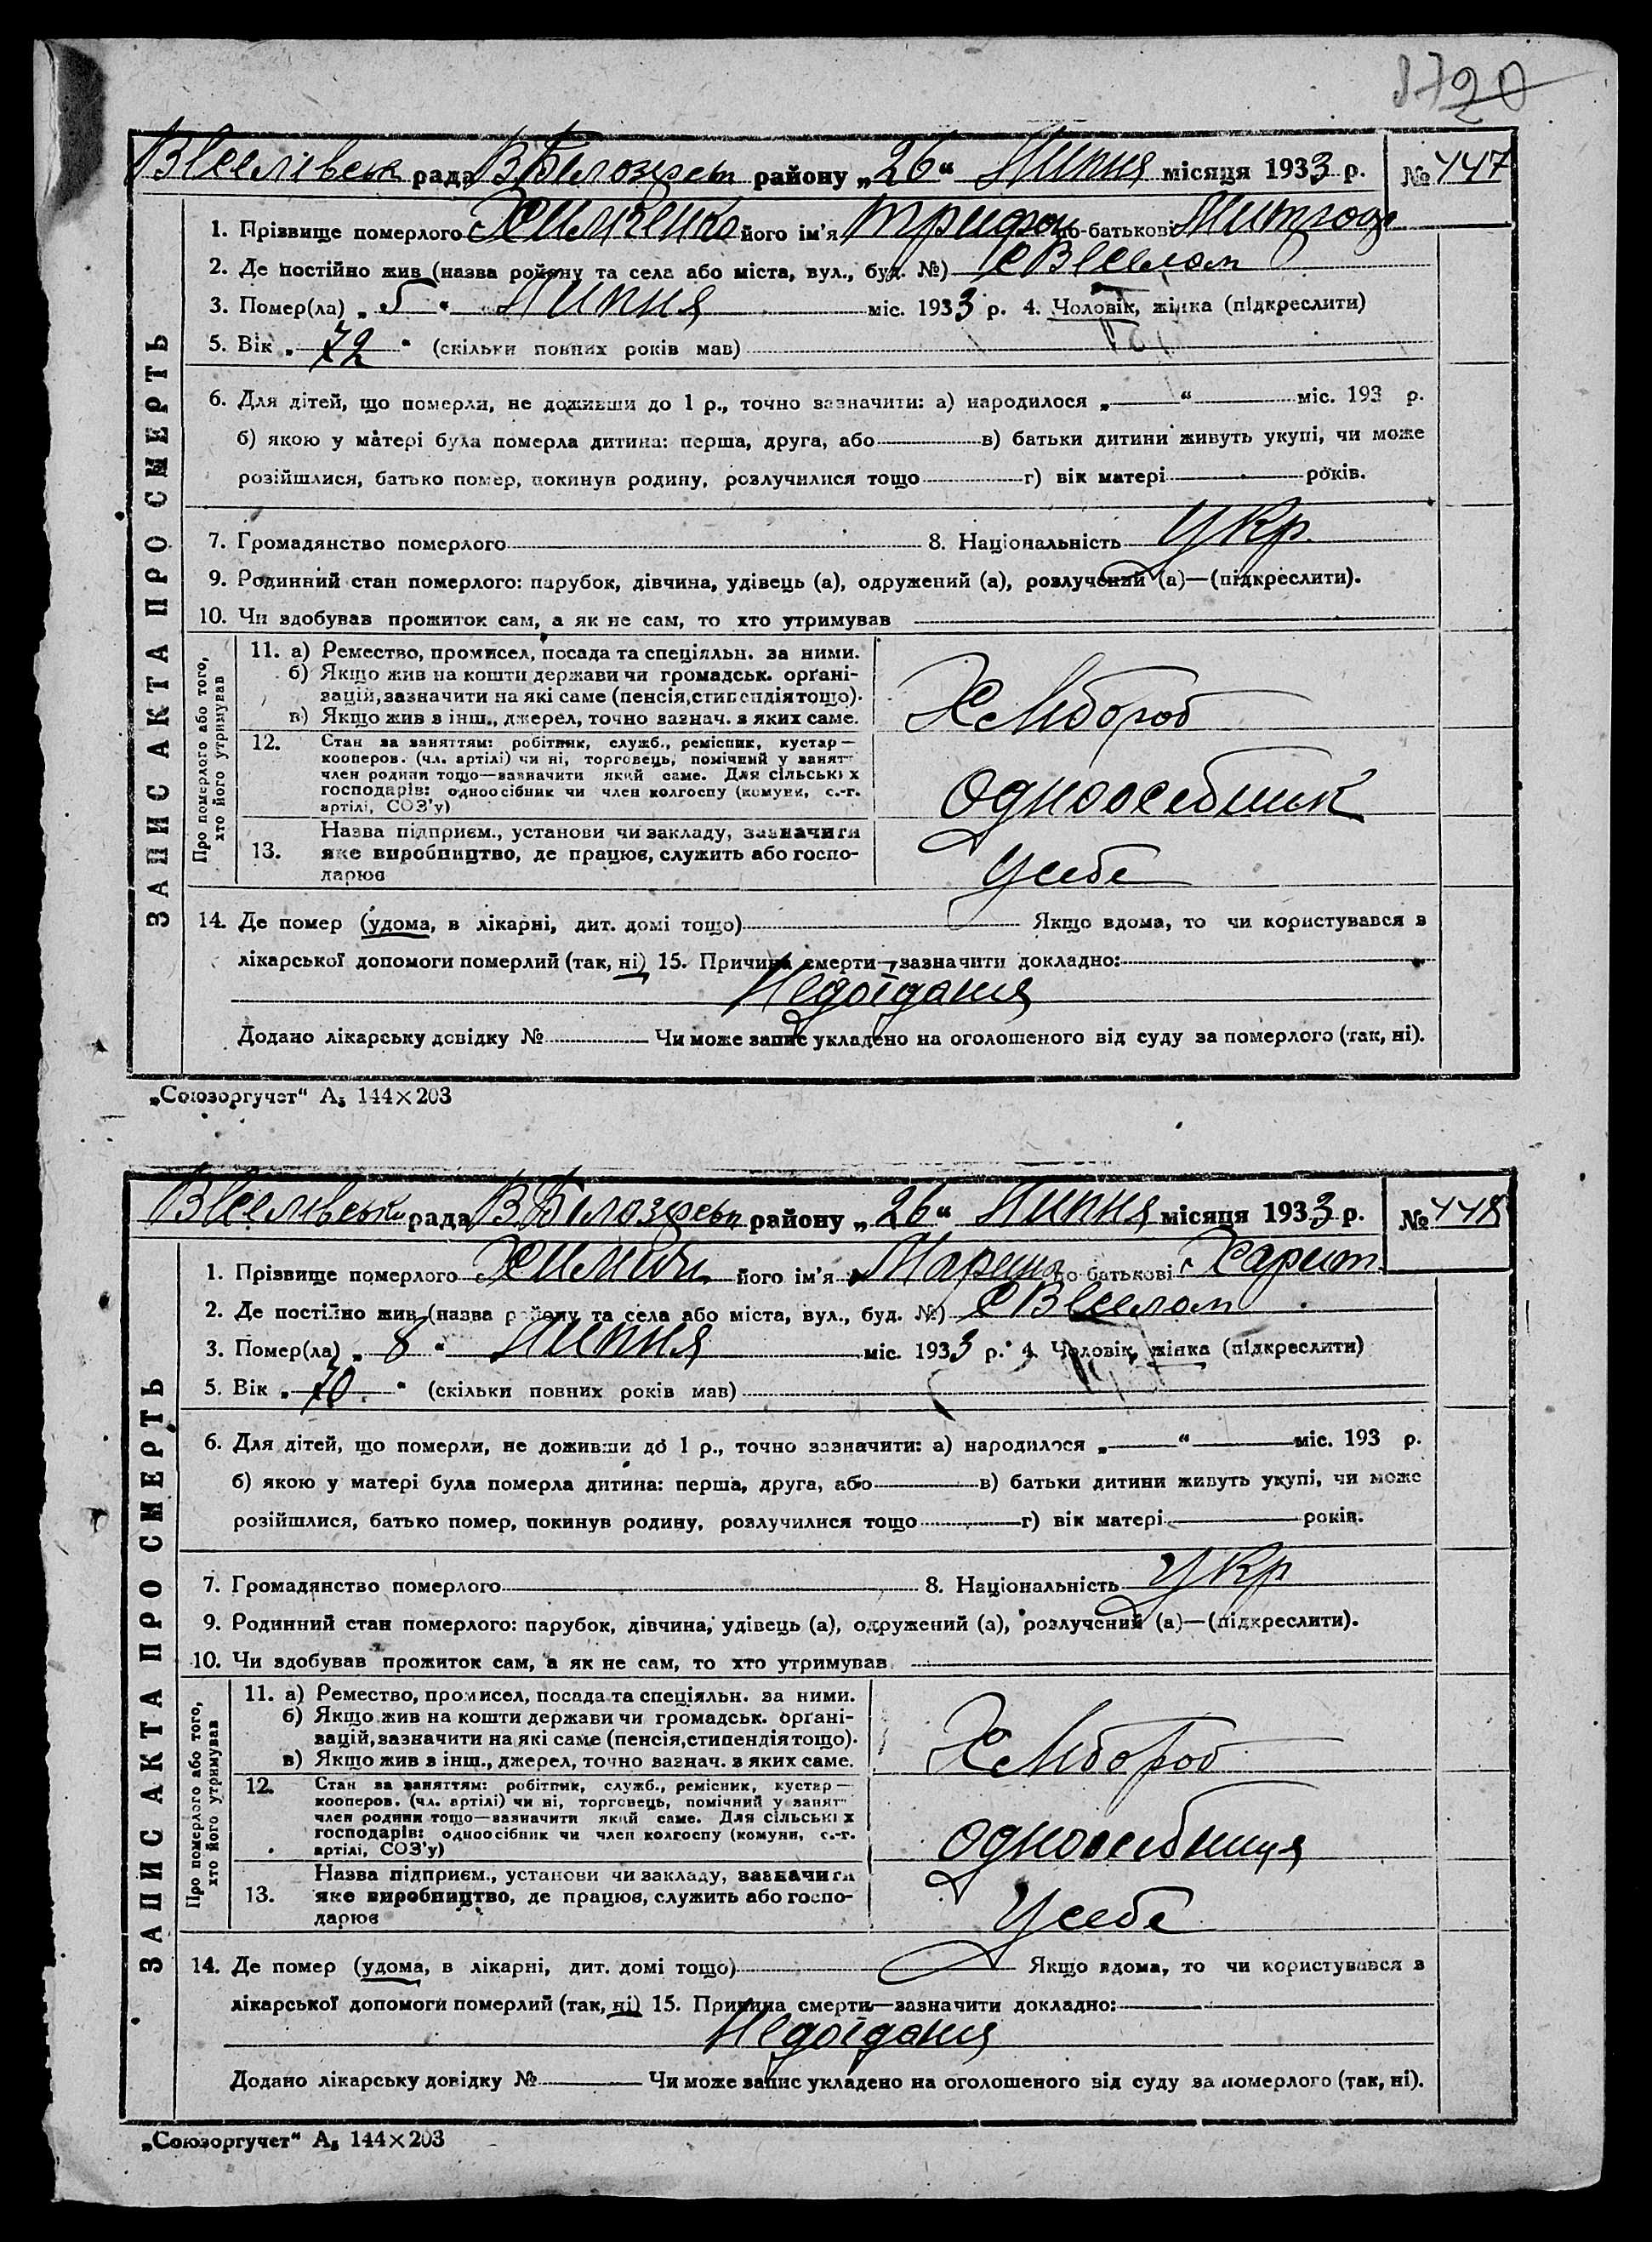 Веселівськ рада В Білозерськ району „26“ Липня місяця 1933 р. № 447
1. Прізвище померлого Хилченко його ім'я Трифон по-батькові
2. Де постійно жив (назва району та села або міста, вул., буд. №) с Веселом
3. Помер(ла) „5“ Липня міс. 1933 р. 4. Чоловік, жінка (підкреслити)
5. Вік „72“ (скільки повних років мав)
6. Для дітей, що померли, не доживши до 1 р., точно зазначити: а) народилося „ “ міс. 193 р.
б) якою у матері була померла дитина: перша, друга, або в) батьки дитини живуть укупі, чи може
розійшлися, батько помер, покинув родину, розлучилися тощо г) вік матері років.
7. Громадянство померлого 8. Національність Укр.
9. Родинний стан померлого: парубок, дівчина, удівець (а), одружений (а), розлучений (а)—(підкреслити).
10. Чи здобував прожиток сам, а як не сам, то хто утримував
ЗАПИС АКТА ПРО СМЕРТЬ
Про померлого або того,
хто його утримував
11. а) Ремество, промисел, посада та спеціяльн. за ними.
б) Якщо жив на кошти держави чи громадськ. органі-
зацій, зазначити на які саме (пенсія, стипендія тощо).
в) Якщо жив з інш., джерел, точно зазнач. з яких саме.
Хлібороб
12. Стан за заняттям: робітник, служб., ремісник, кустар—
кооперов. (чл. артілі) чи ні, торговець, помічний у занят
член родини тощо—зазначити який саме. Для сільських
господарів: одноосібник чи член колгоспу (комуни, с.-г.
артілі, СОЗ'у)
одноосебник
Назва підприєм., установи чи закладу, зазначити
13. яке виробництво, де працює, служить або госпо-
дарює
У себе
14. Де помер (удома, в лікарні, дит. домі тощо) Якщо вдома, то чи користувався з
лікарської допомоги померлий (так, ні) 15. Причина смерти—зазначити докладно:
Недоїдання
Додано лікарську довідку № Чи може запис укладено на оголошеного від суду за померлого (так, ні).
„Союзоргучет“ А₅ 144×203
Веселівськ рада В Білозерськ району „26“ Липня місяця 1933 р. № 448
1. Прізвище померлого його ім'я по батькові Харит
2. Де постійно жив (назва району та села або міста, вул., буд. №) с Веселом
3. Помер(ла) „8“ Липня міс. 1933 р. 4. Чоловік, жінка (підкреслити)
5. Вік „70“ (скільки повних років мав)
6. Для дітей, що померли, не доживши до 1 р., точно зазначити: а) народилося „ “ міс. 193 р.
б) якою у матері була померла дитина: перша, друга, або в) батьки дитини живуть укупі, чи може
розійшлися, батько помер, покинув родину, розлучилися тощо г) вік матері років.
7. Громадянство померлого 8. Національність Укр
9. Родинний стан померлого: парубок, дівчина, удівець (а), одружений (а), розлучений (а)—(підкреслити).
10. Чи здобував прожиток сам, а як не сам, то хто утримував
ЗАПИС АКТА ПРО СМЕРТЬ
Про померлого або того,
хто його утримував
11. а) Ремество, промисел, посада та спеціяльн. за ними.
б) Якщо жив на кошти держави чи громадськ. органі-
зацій, зазначити на які саме (пенсія, стипендія тощо).
в) Якщо жив з інш., джерел, точно зазнач. з яких саме.
Хлібороб
12. Стан за заняттям: робітник, служб., ремісник, кустар—
кооперов. (чл. артілі) чи ні, торговець, помічний у занят
член родини тощо—зазначити який саме. Для сільських
господарів: одноосібник чи член колгоспу (комуни, с.-г.
артілі, СОЗ'у)
одноосебниця
Назва підприєм., установи чи закладу, зазначити
13. яке виробництво, де працює, служить або госпо-
дарює
У себе
14. Де помер (удома, в лікарні, дит. домі тощо) Якщо вдома, то чи користувався з
лікарської допомоги померлий (так, ні) 15. Причина смерти—зазначити докладно:
Недоїдання
Додано лікарську довідку № Чи може запис укладено на оголошеного від суду за померлого (так, ні).
„Союзоргучет“ А₅ 144×203